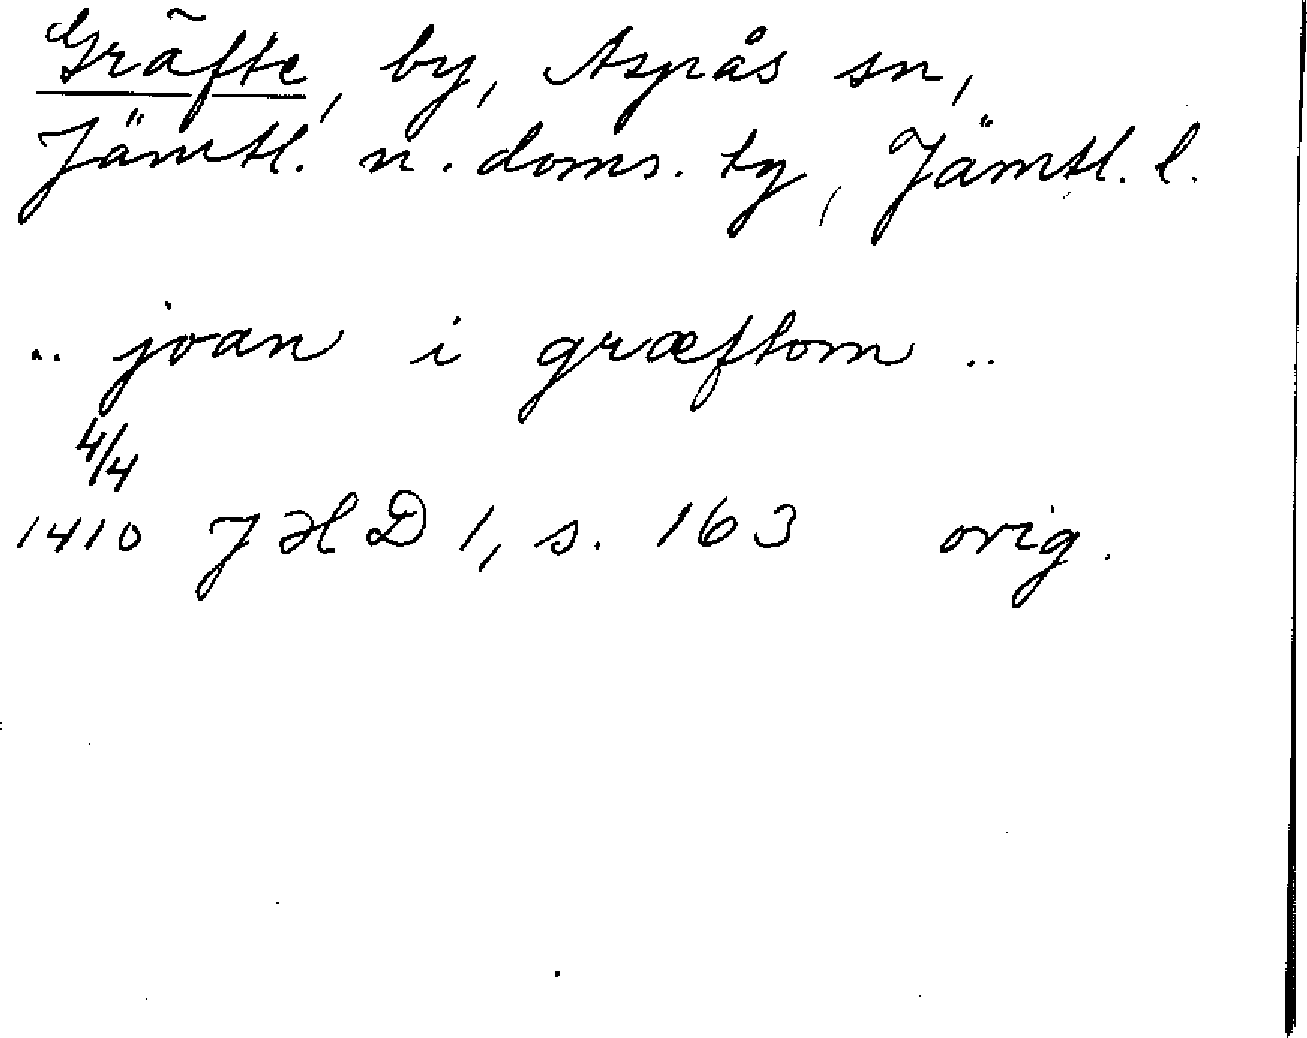 Gräfte, by, Aspås sn,
Jämtl. n. doms. tg, Jämtl. l.
.. joan i græftom ..
4/4
1410 JHD 1, s. 163 orig.